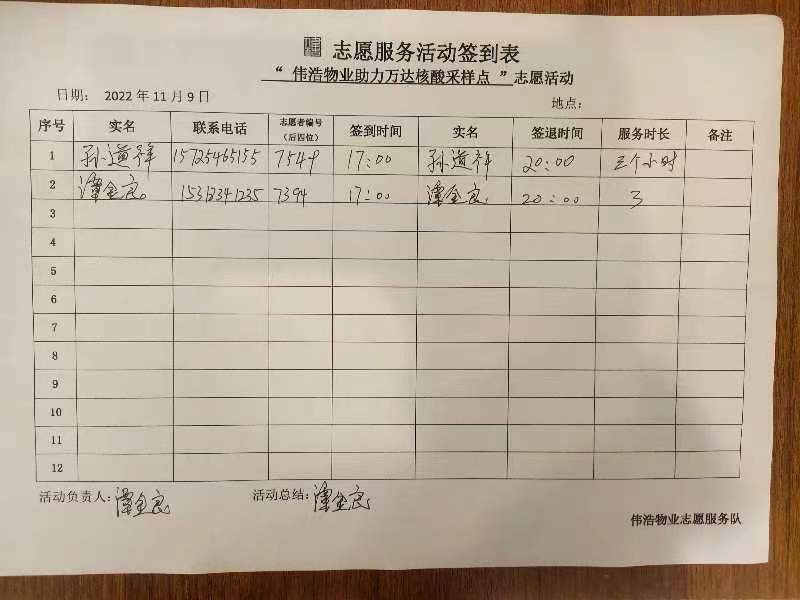 志愿服务活动签到表
“ 伟浩物业助力万达核酸采样点 ”志愿活动
日期： 2022 年 11 月 9 日 地点：
序号 实名 联系电话 志愿者编号（后四位） 签到时间 实名 签退时间 服务时长 备注
1 孙道祥 15725465155 7549 17:00 孙道祥 20:00 三个小时
2 谭金良 15312341235 7394 17:00 谭金良 20:00 3
3
4
5
6
7
8
9
10
11
12
活动负责人：谭金良 活动总结：谭金良
伟浩物业志愿服务队